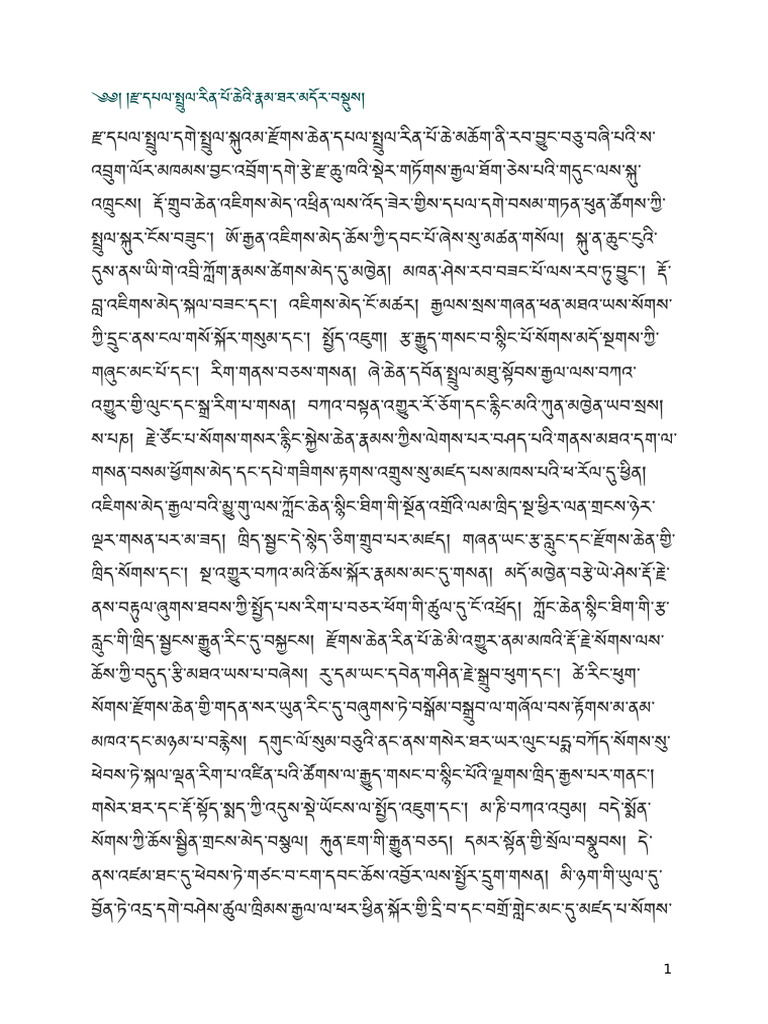 ༄༅། །རྫ་དཔལ་སྤྲུལ་རིན་པོ་ཆེའི་རྣམ་ཐར་མདོར་བསྡུས།
རྫ་དཔལ་སྤྲུལ་དགེ་སྤྲུལ་སྐུའམ་རྫོགས་ཆེན་དཔལ་སྤྲུལ་རིན་པོ་ཆེ་མཆོག་ནི་རབ་བྱུང་བཅུ་བཞི་པའི་ས་
འབྲུག་ལོར་མཁམས་བྱང་འབྲོག་དགེ་རྩེ་རྫ་ཆུ་ཁའི་སྡེར་གཏོགས་རྒྱལ་ཐོག་ཅེས་པའི་གདུང་ལས་སྐུ་
འཁྲུངས། རྡོ་གྲུབ་ཆེན་འཇིགས་མེད་འཕྲིན་ལས་འོད་ཟེར་གྱིས་དཔལ་དགེ་བསམ་གཏན་ཕུན་ཚོགས་ཀྱི་
སྤྲུལ་སྐུར་ངོས་བཟུང་། ཨོ་རྒྱན་འཇིགས་མེད་ཆོས་ཀྱི་དབང་པོ་ཞེས་སུ་མཚན་གསོལ། སྐུ་ན་ཆུང་ངུའི་
དུས་ནས་ཡི་གེ་འབྲི་ཀློག་རྣམས་ཚེགས་མེད་དུ་མཁྱེན། མཁན་ཤེས་རབ་བཟང་པོ་ལས་རབ་ཏུ་བྱུང་། རྡོ་
བླ་འཇིགས་མེད་སྐལ་བཟང་དང་། འཇིགས་མེད་ངོ་མཚར། རྒྱལས་སྲས་གཞན་ཕན་མཐའ་ཡས་སོགས་
ཀྱི་དྲུང་ནས་ངལ་གསོ་སྐོར་གསུམ་དང་། སྤྱོད་འཇུག རྩ་རྒྱུད་གསང་བ་སྙིང་པོ་སོགས་མདོ་སྔགས་ཀྱི་
གཞུང་མང་པོ་དང་། རིག་གནས་བཅས་གསན། ཞེ་ཆེན་དབོན་སྤྲུལ་མཐུ་སྟོབས་རྒྱལ་ལས་བཀའ་
འགྱུར་གྱི་ལུང་དང་སྒྲ་རིག་པ་གསན། བཀའ་བསྟན་འགྱུར་རོ་ཅོག་དང་རྙིང་མའི་ཀུན་མཁྱེན་ཡབ་སྲས།
ས་པཎ། རྗེ་ཙོང་པ་སོགས་གསར་རྙིང་སྐྱེས་ཆེན་རྣམས་ཀྱིས་ལེགས་པར་བཤད་པའི་གནས་མཐའ་དག་ལ་
གསན་བསམ་ཕྱོགས་མེད་དང་དཔེ་གཟིགས་རྟགས་འགྲུས་སུ་མཛད་པས་མཁས་པའི་ཕ་རོལ་དུ་ཕྱིན།
འཇིགས་མེད་རྒྱལ་བའི་མྱུ་གུ་ལས་ཀློང་ཆེན་སྙིང་ཐིག་གི་སྔོན་འགྲོའི་ལམ་ཁྲིད་སྔ་ཕྱིར་ལན་གྲངས་ཉེར་
ལྔར་གསན་པར་མ་ཟད། ཁྲིད་སྦྱང་དེ་སྙེད་ཅིག་གྲུབ་པར་མཛད། གཞན་ཡང་རྩ་རླུང་དང་རྫོགས་ཆེན་གྱི་
ཁྲིད་སོགས་དང་། སྔ་འགྱུར་བཀའ་མའི་ཆོས་སྐོར་རྣམས་མང་དུ་གསན། མདོ་མཁྱེན་བརྩེ་ཡེ་ཤེས་རྡོ་རྗེ་
ནས་བརྟུལ་ཞུགས་ཐབས་ཀྱི་སྤྱོད་པས་རིག་པ་བཅར་ཕོག་གི་ཚུལ་དུ་ངོ་འཕྲོད། ཀློང་ཆེན་སྙིང་ཐིག་གི་རྩ་
རླུང་གི་ཁྲིད་སྦྱངས་རྒྱུན་རིང་དུ་བསྐྱངས། རྫོགས་ཆེན་རིན་པོ་ཆེ་མི་འགྱུར་ནམ་མཁའི་རྡོ་རྗེ་སོགས་ལས་
ཆོས་ཀྱི་བདུད་རྩི་མཐའ་ཡས་པ་བཞེས། རུ་དམ་ཡང་དབེན་གཤིན་རྗེ་སྒྲུབ་ཕུག་དང་། ཚེ་རིང་ཕུག་
སོགས་རྫོགས་ཆེན་གྱི་གདན་སར་ཡུན་རིང་དུ་བཞུགས་ཏེ་བསྒོམ་བསྒྲུབ་ལ་གཞོལ་བས་རྟོགས་མ་ནམ་
མཁའ་དང་མཉམ་པ་བརྙེས། དགུང་ལོ་སུམ་བཅུའི་ནང་ནས་གསེར་ཐར་ཡར་ལུང་པདྨ་བཀོད་སོགས་སུ་
ཕེབས་ཏེ་སྐལ་ལྡན་རིག་པ་འཛིན་པའི་ཚོགས་ལ་རྒྱུད་གསང་བ་སྙིང་པོའི་ལྗགས་ཁྲིད་རྒྱས་པར་གནང་།
གསེར་ཐར་དང་རྡོ་སྟོད་སྨད་ཀྱི་འདུས་སྡེ་ཡོངས་ལ་སྤྱོད་འཇུག་དང་། མ་ཎི་བཀའ་འབུམ། བདེ་སྨོན་
སོགས་ཀྱི་ཆོས་སྦྱིན་གྲངས་མེད་བསྩལ། རྐུན་ཇག་གི་རྒྱུན་བཅད། དམར་སྟོན་གྱི་སྲོལ་བསྣུབས། དེ་
ནས་འཛམ་ཐང་དུ་ཕེབས་ཏེ་གཙང་བ་ངག་དབང་ཆོས་འབྱོར་ལས་སྦྱོར་དྲུག་གསན། མི་ཉག་གི་ཡུལ་དུ་
བྱོན་ཏེ་འདྲ་དགེ་བཤེས་ཚུལ་ཁྲིམས་རྒྱལ་ལ་ཕར་ཕྱིན་སྐོར་གྱི་དྲི་བ་དང་བགྲོ་གླེང་མང་དུ་མཛད་པ་སོགས་
1